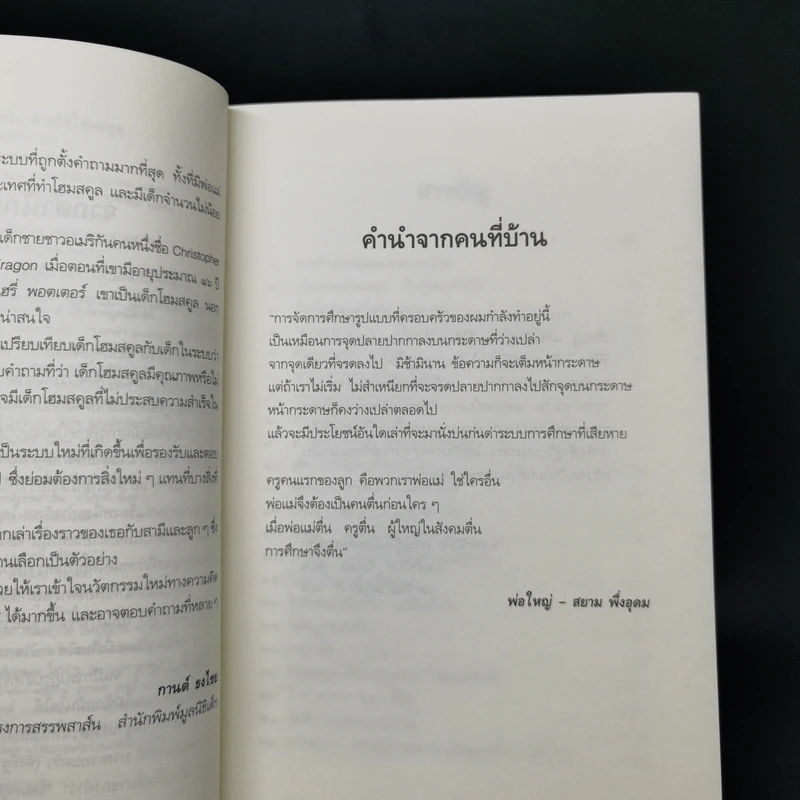 ระบบที่ถูกตั้งคำถามมากที่สุด ทั้งที่มีพ่อแม่
ะเทศที่ทำโฮมสคูล และมีเด็กจำนวนไม่น้อย
เด็กชายชาวอเมริกันคนหนึ่งชื่อ Christopher
ragon เมื่อตอนที่เขามีอายุประมาณ ๑๖ ปี
เฮรี่ พอตเตอร์ เขาเป็นเด็กโฮมสคูล นอก
น่าสนใจ
เปรียบเทียบเด็กโฮมสคูลกับเด็กในระบบว่า
บคำถามที่ว่า เด็กโฮมสคูลมีคุณภาพหรือไม่
จมีเด็กโฮมสคูลที่ไม่ประสบความสำเร็จใน
ป็นระบบใหม่ที่เกิดขึ้นเพื่อรองรับและตอบ
ซึ่งย่อมต้องการสิ่งใหม่ ๆ แทนที่บางสิ่งที่
ักเล่าเรื่องราวของเธอกับสามีและลูก ๆ ซึ่ง
านเลือกเป็นตัวอย่าง
วยให้เราเข้าใจนวัตกรรมใหม่ทางความคิด
ได้มากขึ้น และอาจตอบคำถามที่หลายๆ
กานต์ ธงไชย
รงการสรรพสาส์น สำนักพิมพ์มูลนิธิเด็ก
คำนำจากคนที่บ้าน
"การจัดการศึกษารูปแบบที่ครอบครัวของผมกำลังทำอยู่นี้
เป็นเหมือนการจุดปลายปากกาลงบนกระดาษที่ว่างเปล่า
จากจุดเดียวที่จรดลงไป มิช้ามินาน ข้อความก็จะเต็มหน้ากระดาษ
แต่ถ้าเราไม่เริ่ม ไม่สำเหนียกที่จะจรดปลายปากกาลงไปสักจุดบนกระดาษ
หน้ากระดาษก็คงว่างเปล่าตลอดไป
แล้วจะมีประโยชน์อันใดเล่าที่จะมานั่งบ่นก่นด่าระบบการศึกษาที่เสียหาย
ครูคนแรกของลูก คือพวกเราพ่อแม่ ใช่ใครอื่น
พ่อแม่จึงต้องเป็นคนตื่นก่อนใคร ๆ
เมื่อพ่อแม่ตื่น ครูตื่น ผู้ใหญ่ในสังคมตื่น
การศึกษาจึงตื่น"
พ่อใหญ่ - สยาม พึ่งอุดม